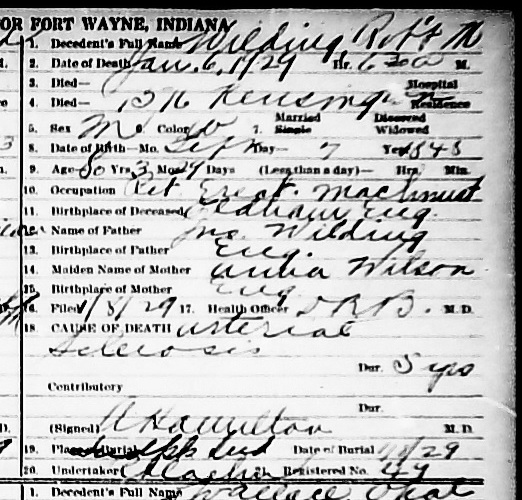 OR FORT WAYNE, INDIANA
1. Decedent's Full Name Wilding, Rob't M
2. Date of Death Jan. 6, 1929 Hr. 6 30 a M.
3. Died— Hospital
4. Died— Kensington Residence
5. Sex M 6. Color W 7. Married Single Divorced Widowed
8. Date of Birth—Mo. Sept Day— 7 Year 1848
9. Age— 80 Yrs. 3 Mos. 29 Days (Less than a day)— Hrs. Min.
10. Occupation Ret Erect. Machinist
11. Birthplace of Deceased Oldham Eng.
12. Name of Father Jno. Wilding
13. Birthplace of Father Eng.
14. Maiden Name of Mother Wilson
15. Birthplace of Mother Eng
16. Filed 1/8/29 17. Health Officer D R B. M.D.
18. CAUSE OF DEATH arterial
Sclerosis
Dur. 5 yrs
Contributory
Dur.
(Signed) A Hamilton M.D.
19. Place Burial Date of Burial /29
20. Undertaker Registered No. 49
1. Decedent's Full Name Wallace